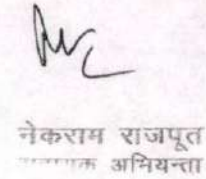 नेकराम राजपूत
अभियन्ता